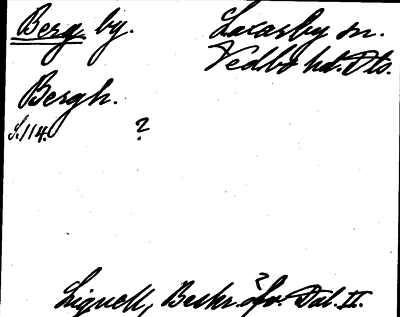 Berg. by. Laxarby sn.
Vedbo hd. Dls.
Bergh.
S. 114. ?
Lignell, Beskr. ? öfv. Dal. II.